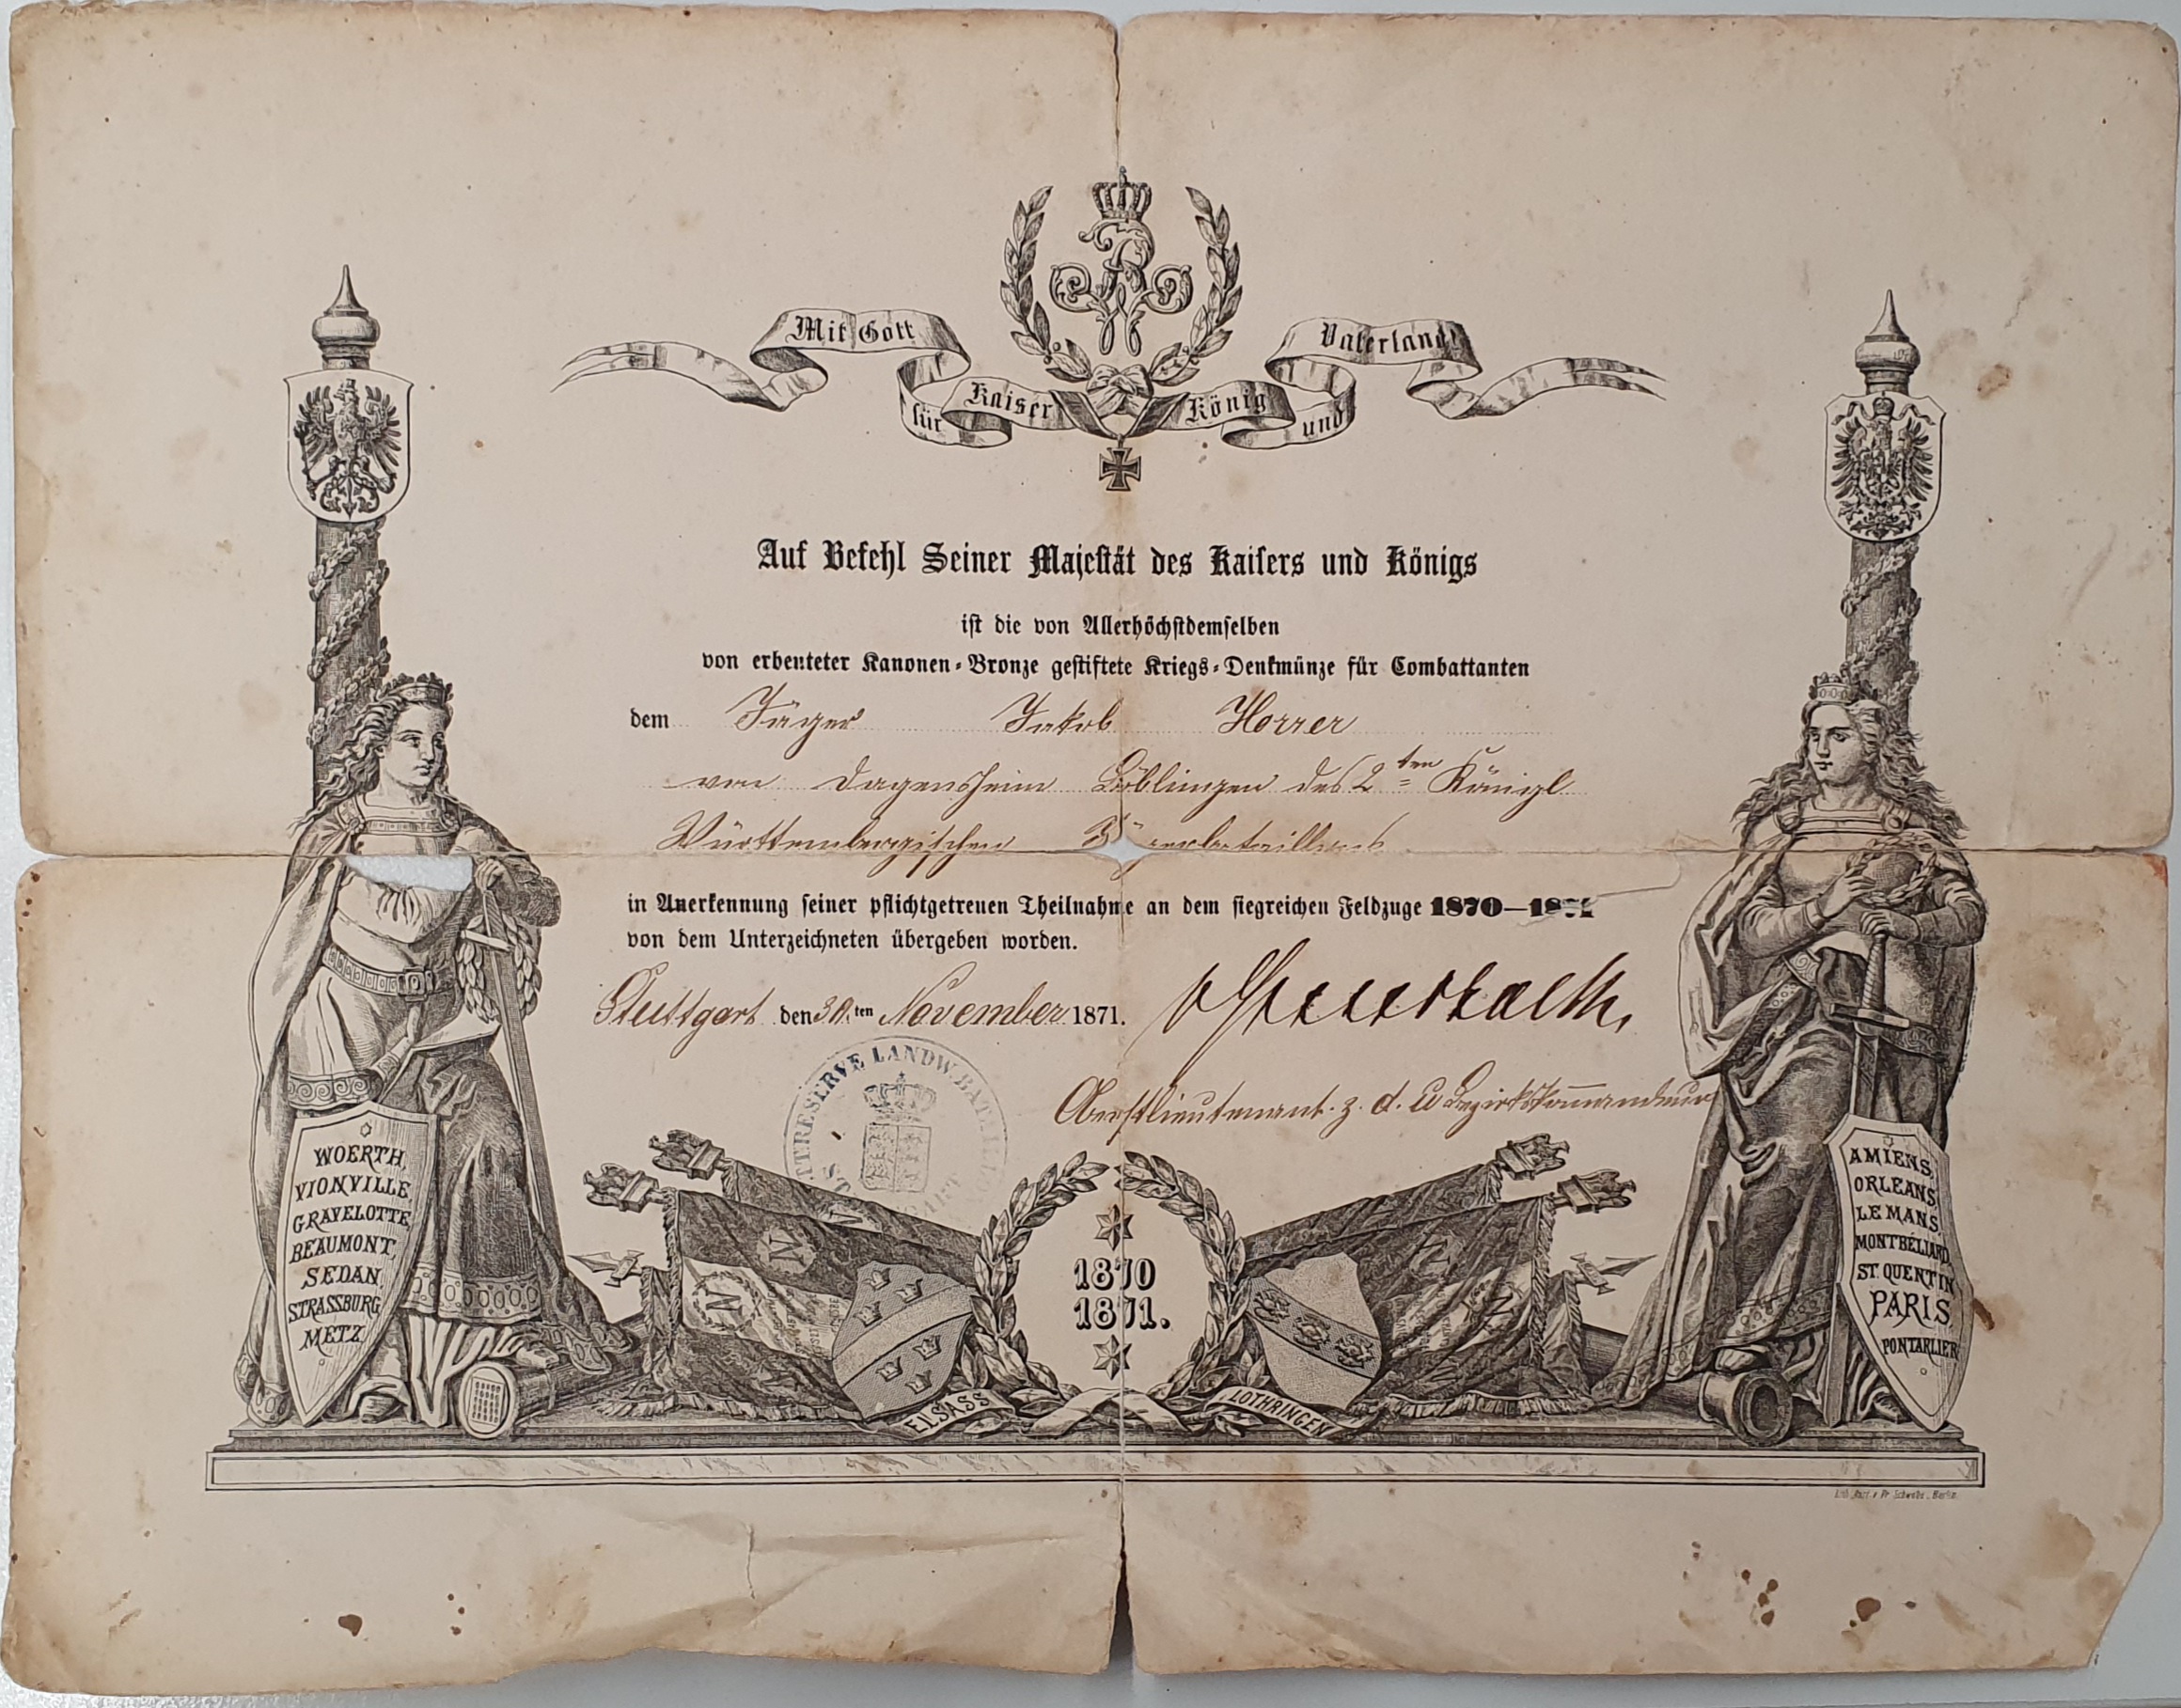 Mit Gott
für Kaiser König und
Vaterland!
Auf Befehl Seiner Majestät des Kaisers und Königs
ist die von Allerhöchstdemselben
von erbeuteter Kanonen-Bronze gestiftete Kriegs-Denkmünze für Combattanten
dem Jäger Jakob Horrer
von Dagersheim Böblingen des 2ten Königl
Württembergischen
in Anerkennung seiner pflichtgetreuen Theilnahme an dem siegreichen Feldzuge 1870—1871
von dem Unterzeichneten übergeben worden.
Stuttgart den ten November 1871.
Oberstlieutenant z. d. u Bezirkskommandeur
RESERVE LANDW. BAT
WOERTH,
VIONVILLE,
GRAVELOTTE,
BEAUMONT,
SEDAN,
STRASSBURG,
METZ.
N
N
1870
1871.
N
N
ELSASS
LOTHRINGEN
AMIENS,
ORLEANS,
LE MANS,
MONTBÉLIARD,
ST. QUENTIN,
PARIS,
PONTARLIER
Schwebs, Berlin